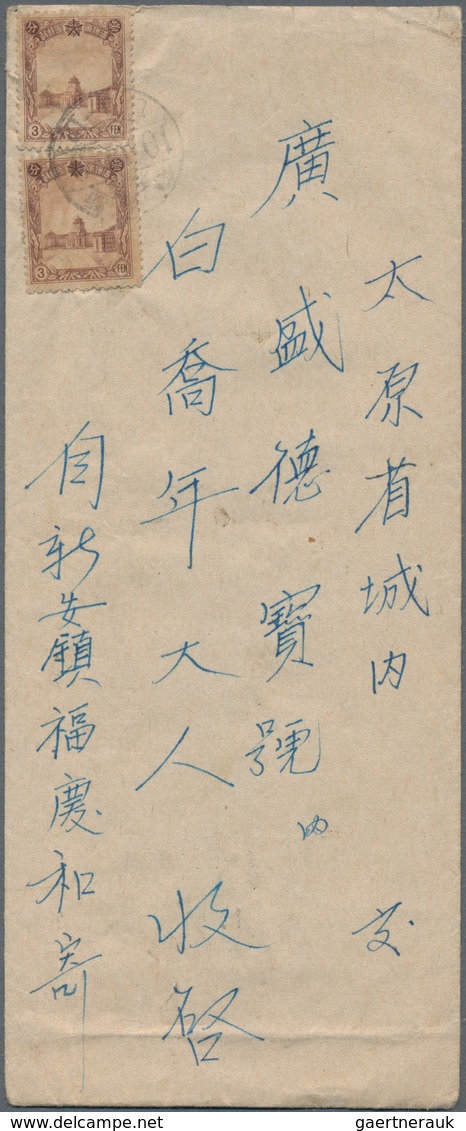 太原省城内 交
廣盛德寶號内
白喬年大人 收啓
自新安鎮福慶和寄
3 FEN
3 FEN
gaertnerauk